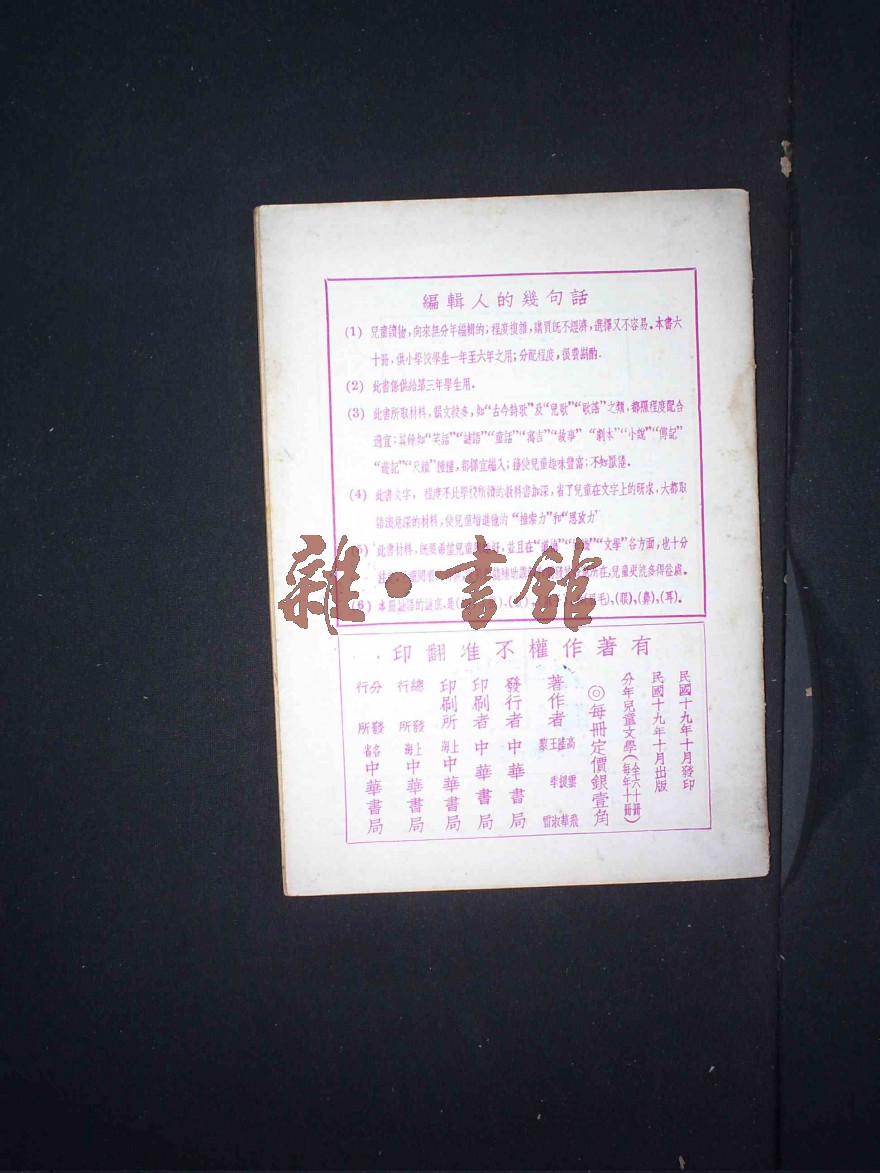 編輯人的幾句話
(1) 兒童讀物,向來無分年編輯的;程度複雜,購買既不經濟,選擇又不容易。本書六
十冊,供小學校學生一年至六年之用;分配程度,很費斟酌。
(2) 此書係供給第三年學生用。
(3) 此書所取材料,韻文較多,如“古今詩歌”及“兒歌”“歌謠”之類,都跟程度配合
適宜;其餘如“笑話”“謎語”“童話”“寓言”“故事”“劇本”“小說”“傳記”
“遊記”“尺牘”種種,都擇宜編入;務使兒童趣味豐富;不知厭倦。
(4) 此書文字,程度不比學校所讀的教科書加深,省了兒童在文字上的研求,大都取
語淺意深的材料,使兒童增進他的“推索力”和“思攷力”
(5) 此書材料,既要希望兒童 好,並且在 “文學”各方面,也十分
所在,兒童更能多得益處。
(6) 本冊謎語的謎底,是 毛)、(眼)、(鼻)、(耳)。
有著作權不准翻印
民國十九年十月發印
民國十九年十月出版
分年兒童文學(全六十冊每年十冊)
◎每冊定價銀壹角
著作者 高雲飛 陸 華 王 淑 黎季雷
發行者 中華書局
印刷者 中華書局
印刷所 上海中華書局
總發行所 上海中華書局
分發行所 各省中華書局
雜·書館